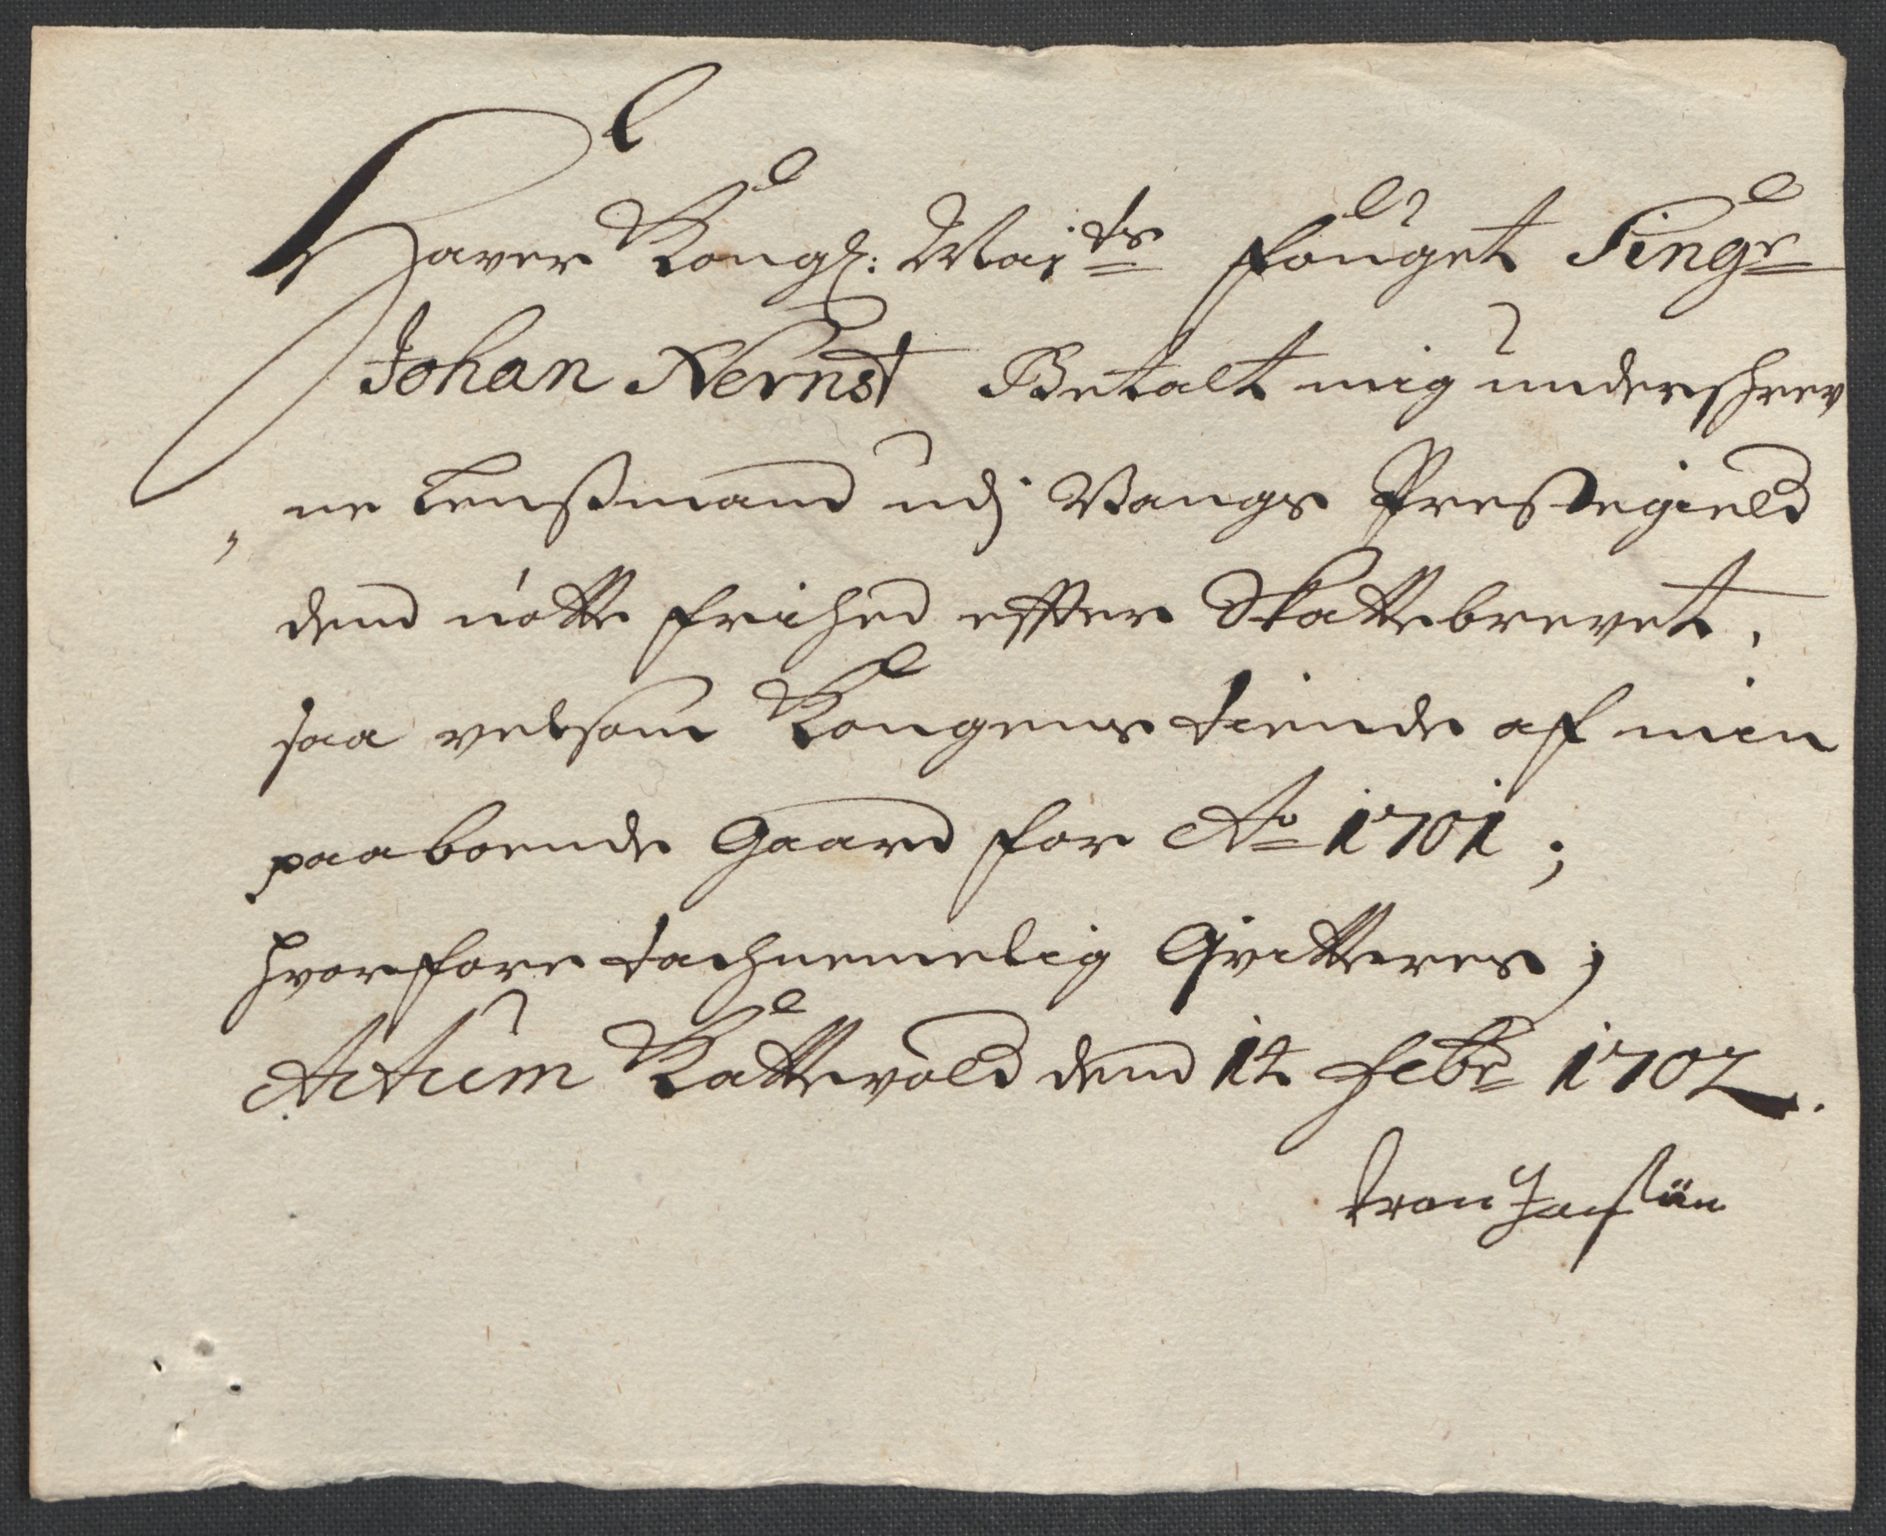 Haver Kongl: May:ts fouget Sing:r
Johan Nernst Betalt mig underschrev
,, ne Lensßmand udj Vangs Prestegield
dend nötte frihed effter Skattebrevet,
saa velsom Kongens tiende af min
paaboende Gaard for Ao 1701;
hvorfore tachnemelig Qvitteres;
Actum Kattevold dend 12 Febr 1702.